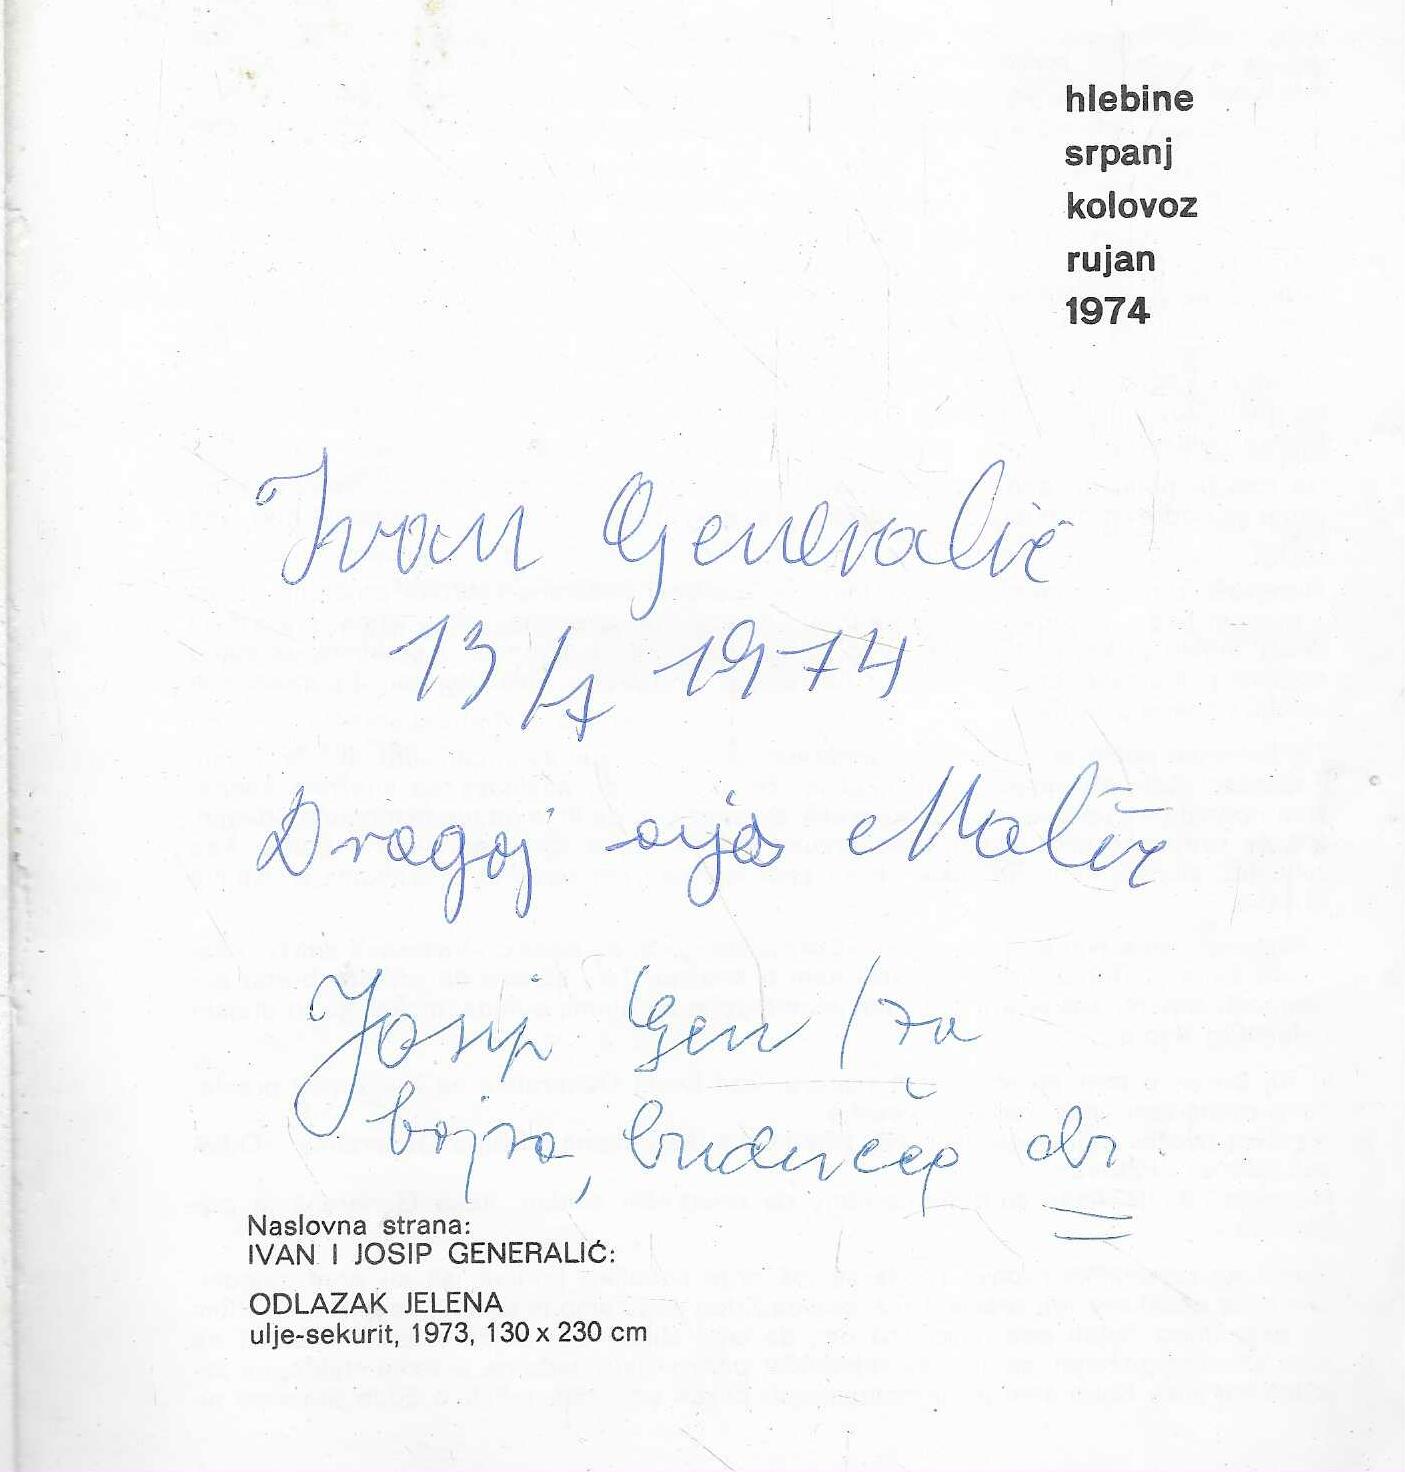 hlebine
srpanj
kolovoz
rujan
1974
Ivan Generalić
13/7 1974
Dragoj
Josip Gen /za
budućeg dr
Naslovna strana:
IVAN I JOSIP GENERALIĆ:
ODLAZAK JELENA
ulje-sekurit, 1973, 130 x 230 cm